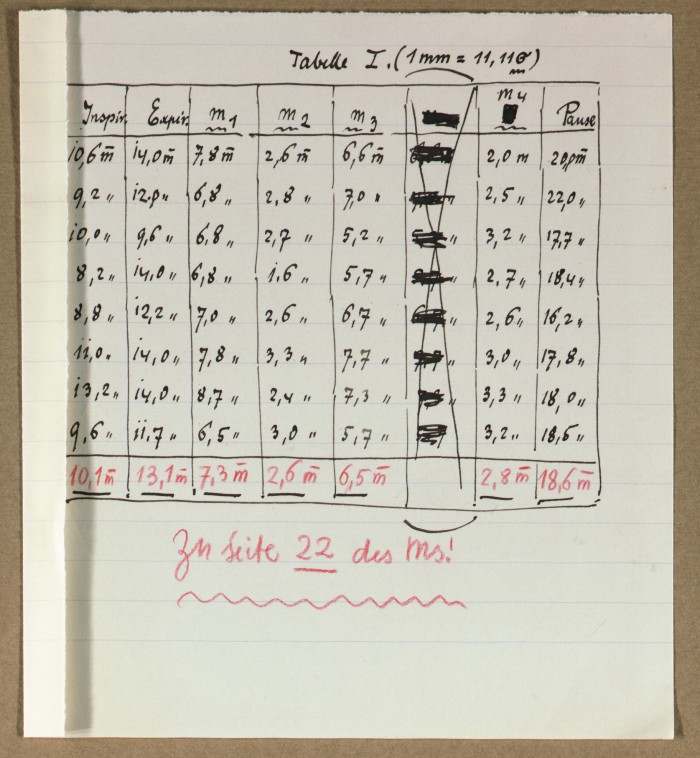 Tabelle I. (1 mm = 11,11σ)
Inspir. Expir. m1 m2 m3 m4 Pause
10,6 m̄ 14,0 m̄ 7,8 m̄ 2,6 m̄ 6,6 m̄ 2,0 m 20,0 m̄
9,2 „ 12,0 „ 6,8 „ 2,8 „ 7,0 „ 2,5 „ 22,0 „
10,0 „ 9,6 „ 6,8 „ 2,7 „ 5,2 „ „ 3,2 „ 17,7 „
8,2 „ 14,0 „ 6,8 „ 1,6 „ 5,7 „ „ 2,7 „ 18,4 „
8,8 „ 12,2 „ 7,0 „ 2,6 „ 6,7 „ „ 2,6 „ 16,2 „
11,0 „ 14,0 „ 7,8 „ 3,3 „ 7,7 „ „ 3,0 „ 17,8 „
13,2 „ 14,0 „ 8,7 „ 2,4 „ 7,3 „ „ 3,3 „ 18,0 „
9,6 „ 11,7 „ 6,5 „ 3,0 „ 5,7 „ 3,2 „ 18,5 „
10,1 m̄ 13,1 m̄ 7,3 m̄ 2,6 m̄ 6,5 m̄ 2,8 m̄ 18,6 m̄
Zu Seite 22 des Ms!